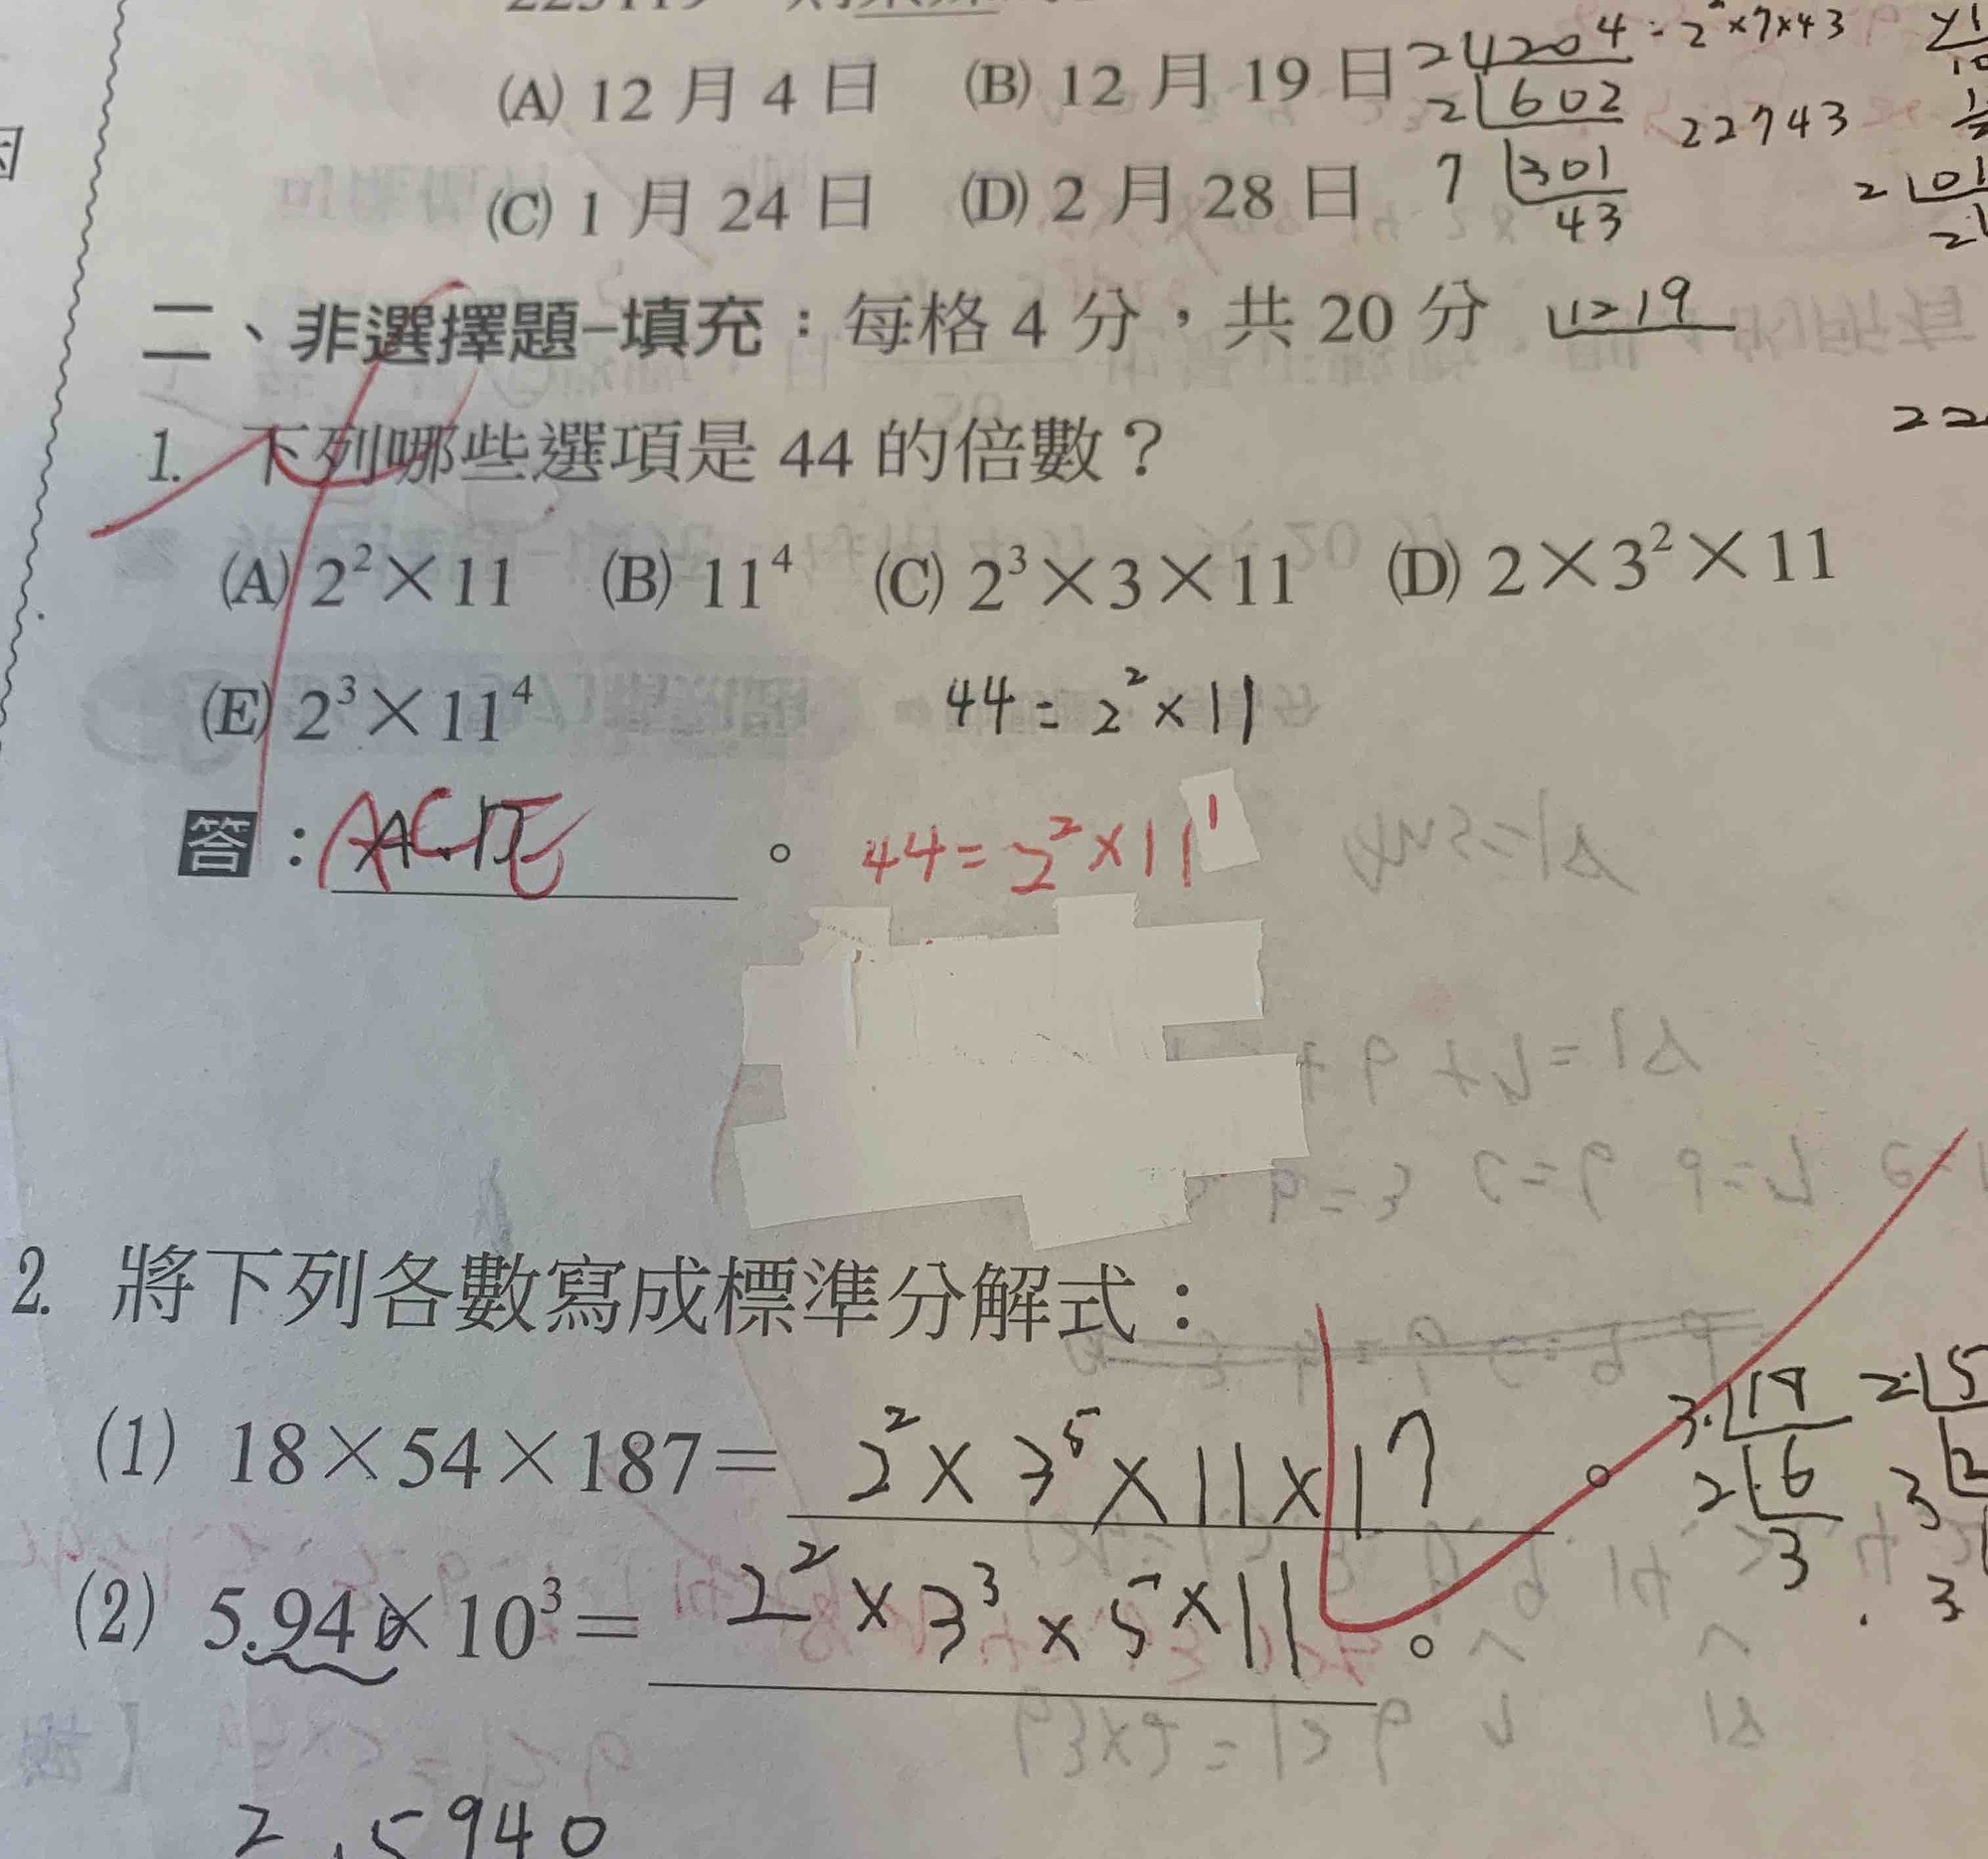 (A) 12 月 4 日 (B) 12 月 19 日
(C) 1 月 24 日 (D) 2 月 28 日
2 4204 = 2² × 7 × 43
2 602
22743
7 301
43
二、非選擇題–填充：每格 4 分，共 20 分
1219
1. 下列哪些選項是 44 的倍數？
(A) 2² × 11 (B) 11⁴ (C) 2³ × 3 × 11 (D) 2 × 3² × 11
(E) 2³ × 11⁴
44 = 2² × 11
答：ACE。
44 = 2² × 11¹
2. 將下列各數寫成標準分解式：
(1) 18 × 54 × 187 = 2² × 3⁵ × 11 × 17。
(2) 5.94 × 10³ = 2² × 3³ × 5 × 11。
3 18
2 6
3
2 5940